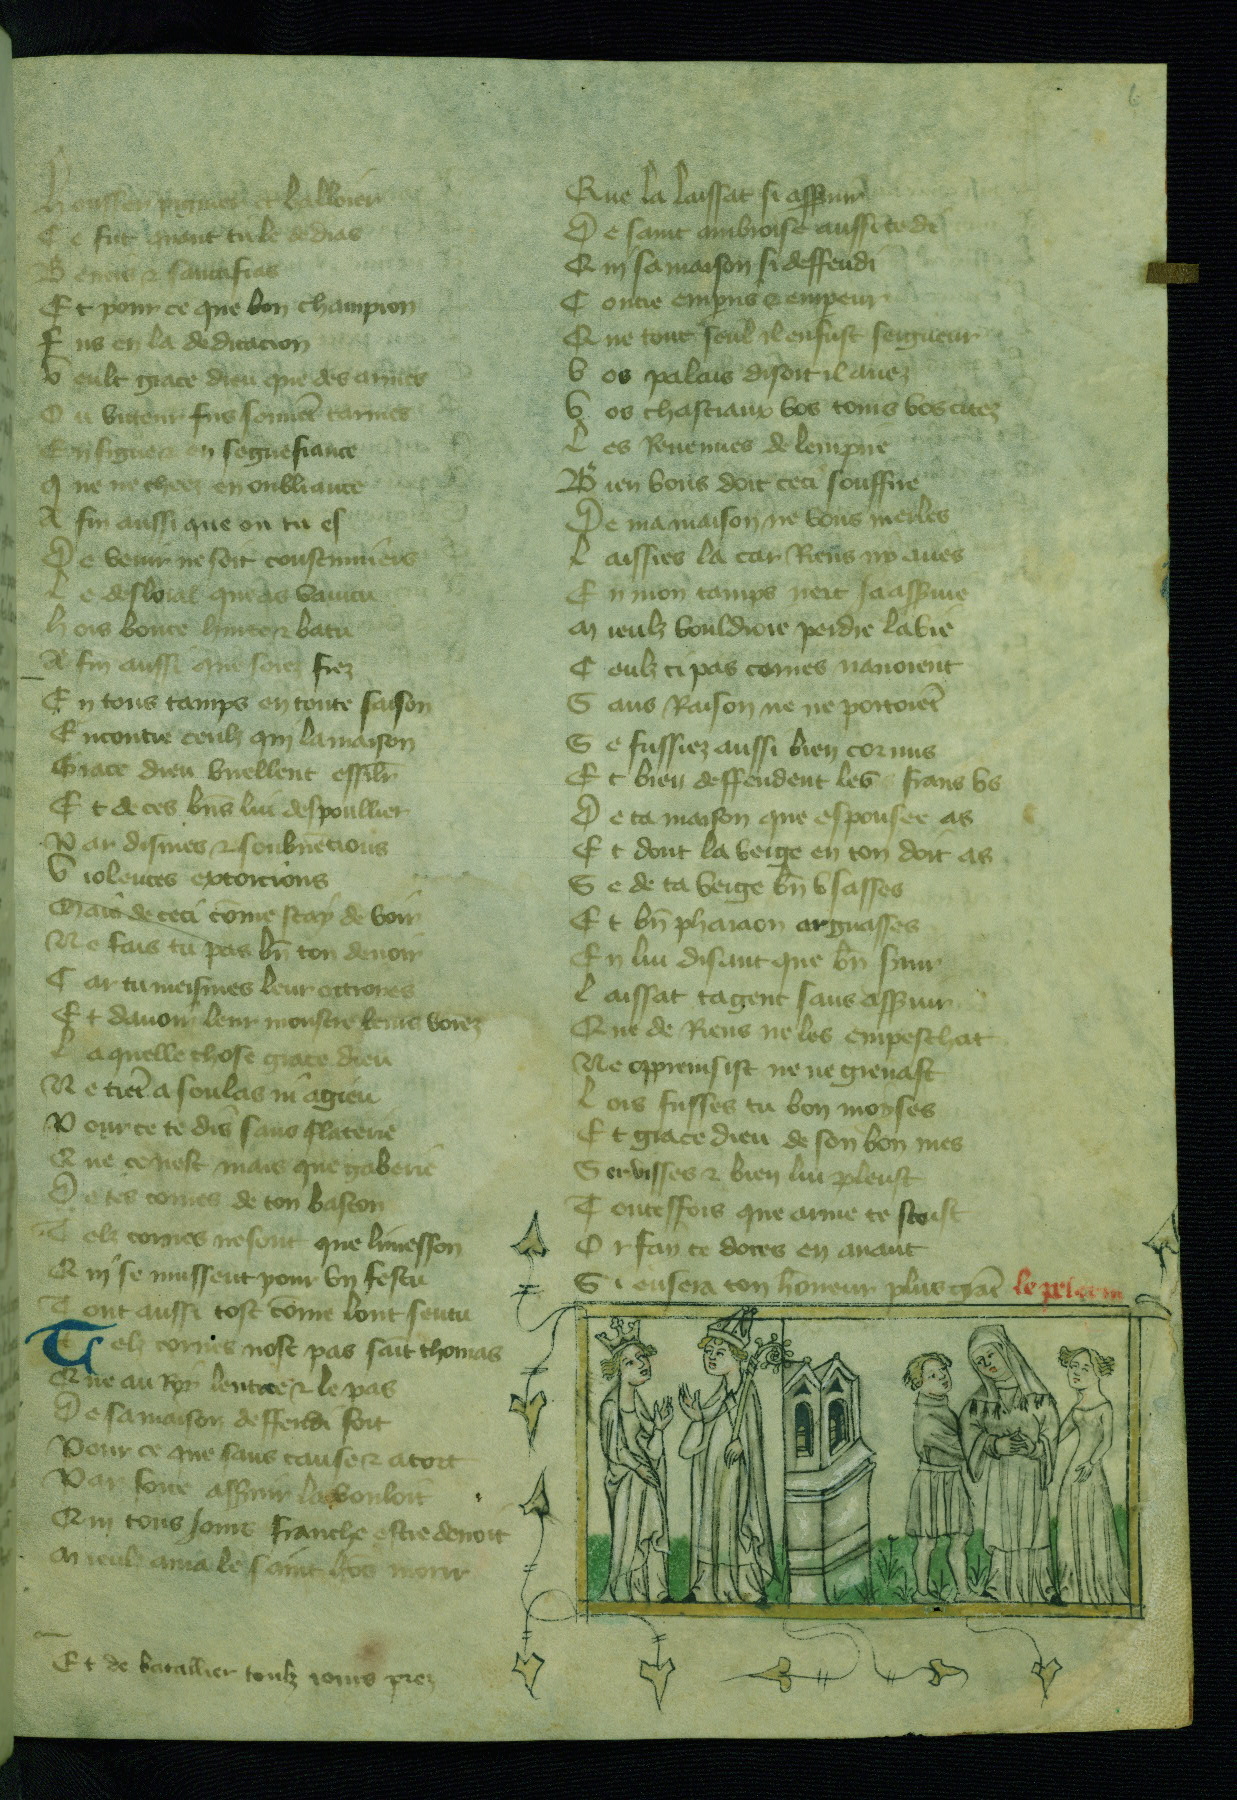 6
Housser
Ce fut quant tu le dedias
Beneis & saintifias
Et pour ce que bon champion
Fus en la dedicacion
Veult grace dieu que des armes
Ou viteur fus soiuēt tarmes
En figure & en segnefiance
Que ne cheez en oubliance
A fin aussi que ou tu es
De venir ne soit coustumiers
Le desloial que as vaincu
hors boute & batu
A fin aussi que soiez fiez
En tous tamps en toute saison
Encontre ceulz qui la maison
Grace dieu vuellent essillr
Et de ces bñs lui despoullier
Par dismes & soubuēcions
Violentes extorcions
Mais de ceci cōme scay de voir
Ne fais tu pas bñ ton deuoir
Car tu meismes leur ottroies
Et dauoir leur monstre les voiez
La quelle chose grace dieu
Ne tiēt a soulas ni a gieu
Pour ce te dis sans flaterie
Que ce nest mais que gaberie
De tes cornes de ton baston
Telz cornes ne sont que limesson
Qui se mussent pour vn festu
Tout aussi tost cōme lont sentu
Telz cornes nost pas saīt thomas
Que au Roy lentree & le pas
De sa maison deffendi fort
Pour ce que sans cause & a tort
Par soue asseruir la vouloit
Qui tous Jours franche estre deuoit
Mieulz ama le saint hōs morir
Et de bataillier toulz iours prez
Que la laissat si asseruir
De saint ambroise aussi te di
Qui sa maison si deffendi
Contre emperis & empeur
Que tout seul il en fust seigneur
Vos palais disoit il auez
Vos chastiaux vos tours vos citez
Les Reuenues de lempire
Bien vous doit ceci souffire
De ma maison ne vous mesles
Laissies la car Riens ny aues
En mon tamps nert Ja asseruie
Mieulz vouldroie perdre la vie
Ceulz ci pas cornes nauoient
Sans Raison ne ne portoiēt
Se fussiez aussi bien cornus
Et bien deffendent les frans vs
De ta maison que espousee as
Et dont la verge en ton doit as
Se de ta verge bñ vsasses
Et bñ pharaon arguasses
En lui disant que bñ seruir
Laissat ta gent sans asseruir
Que de Riens ne les empeschat
Ne oppreinsist ne ne greuast
Lors fusses tu bon moyses
Et grace dieu de son bon mes
Seruisses & bien lui pleust
Toutesfois que arme te sceust
Or fay ce dores en auant
Si en sera ton hōneur plus grāt le pelerin